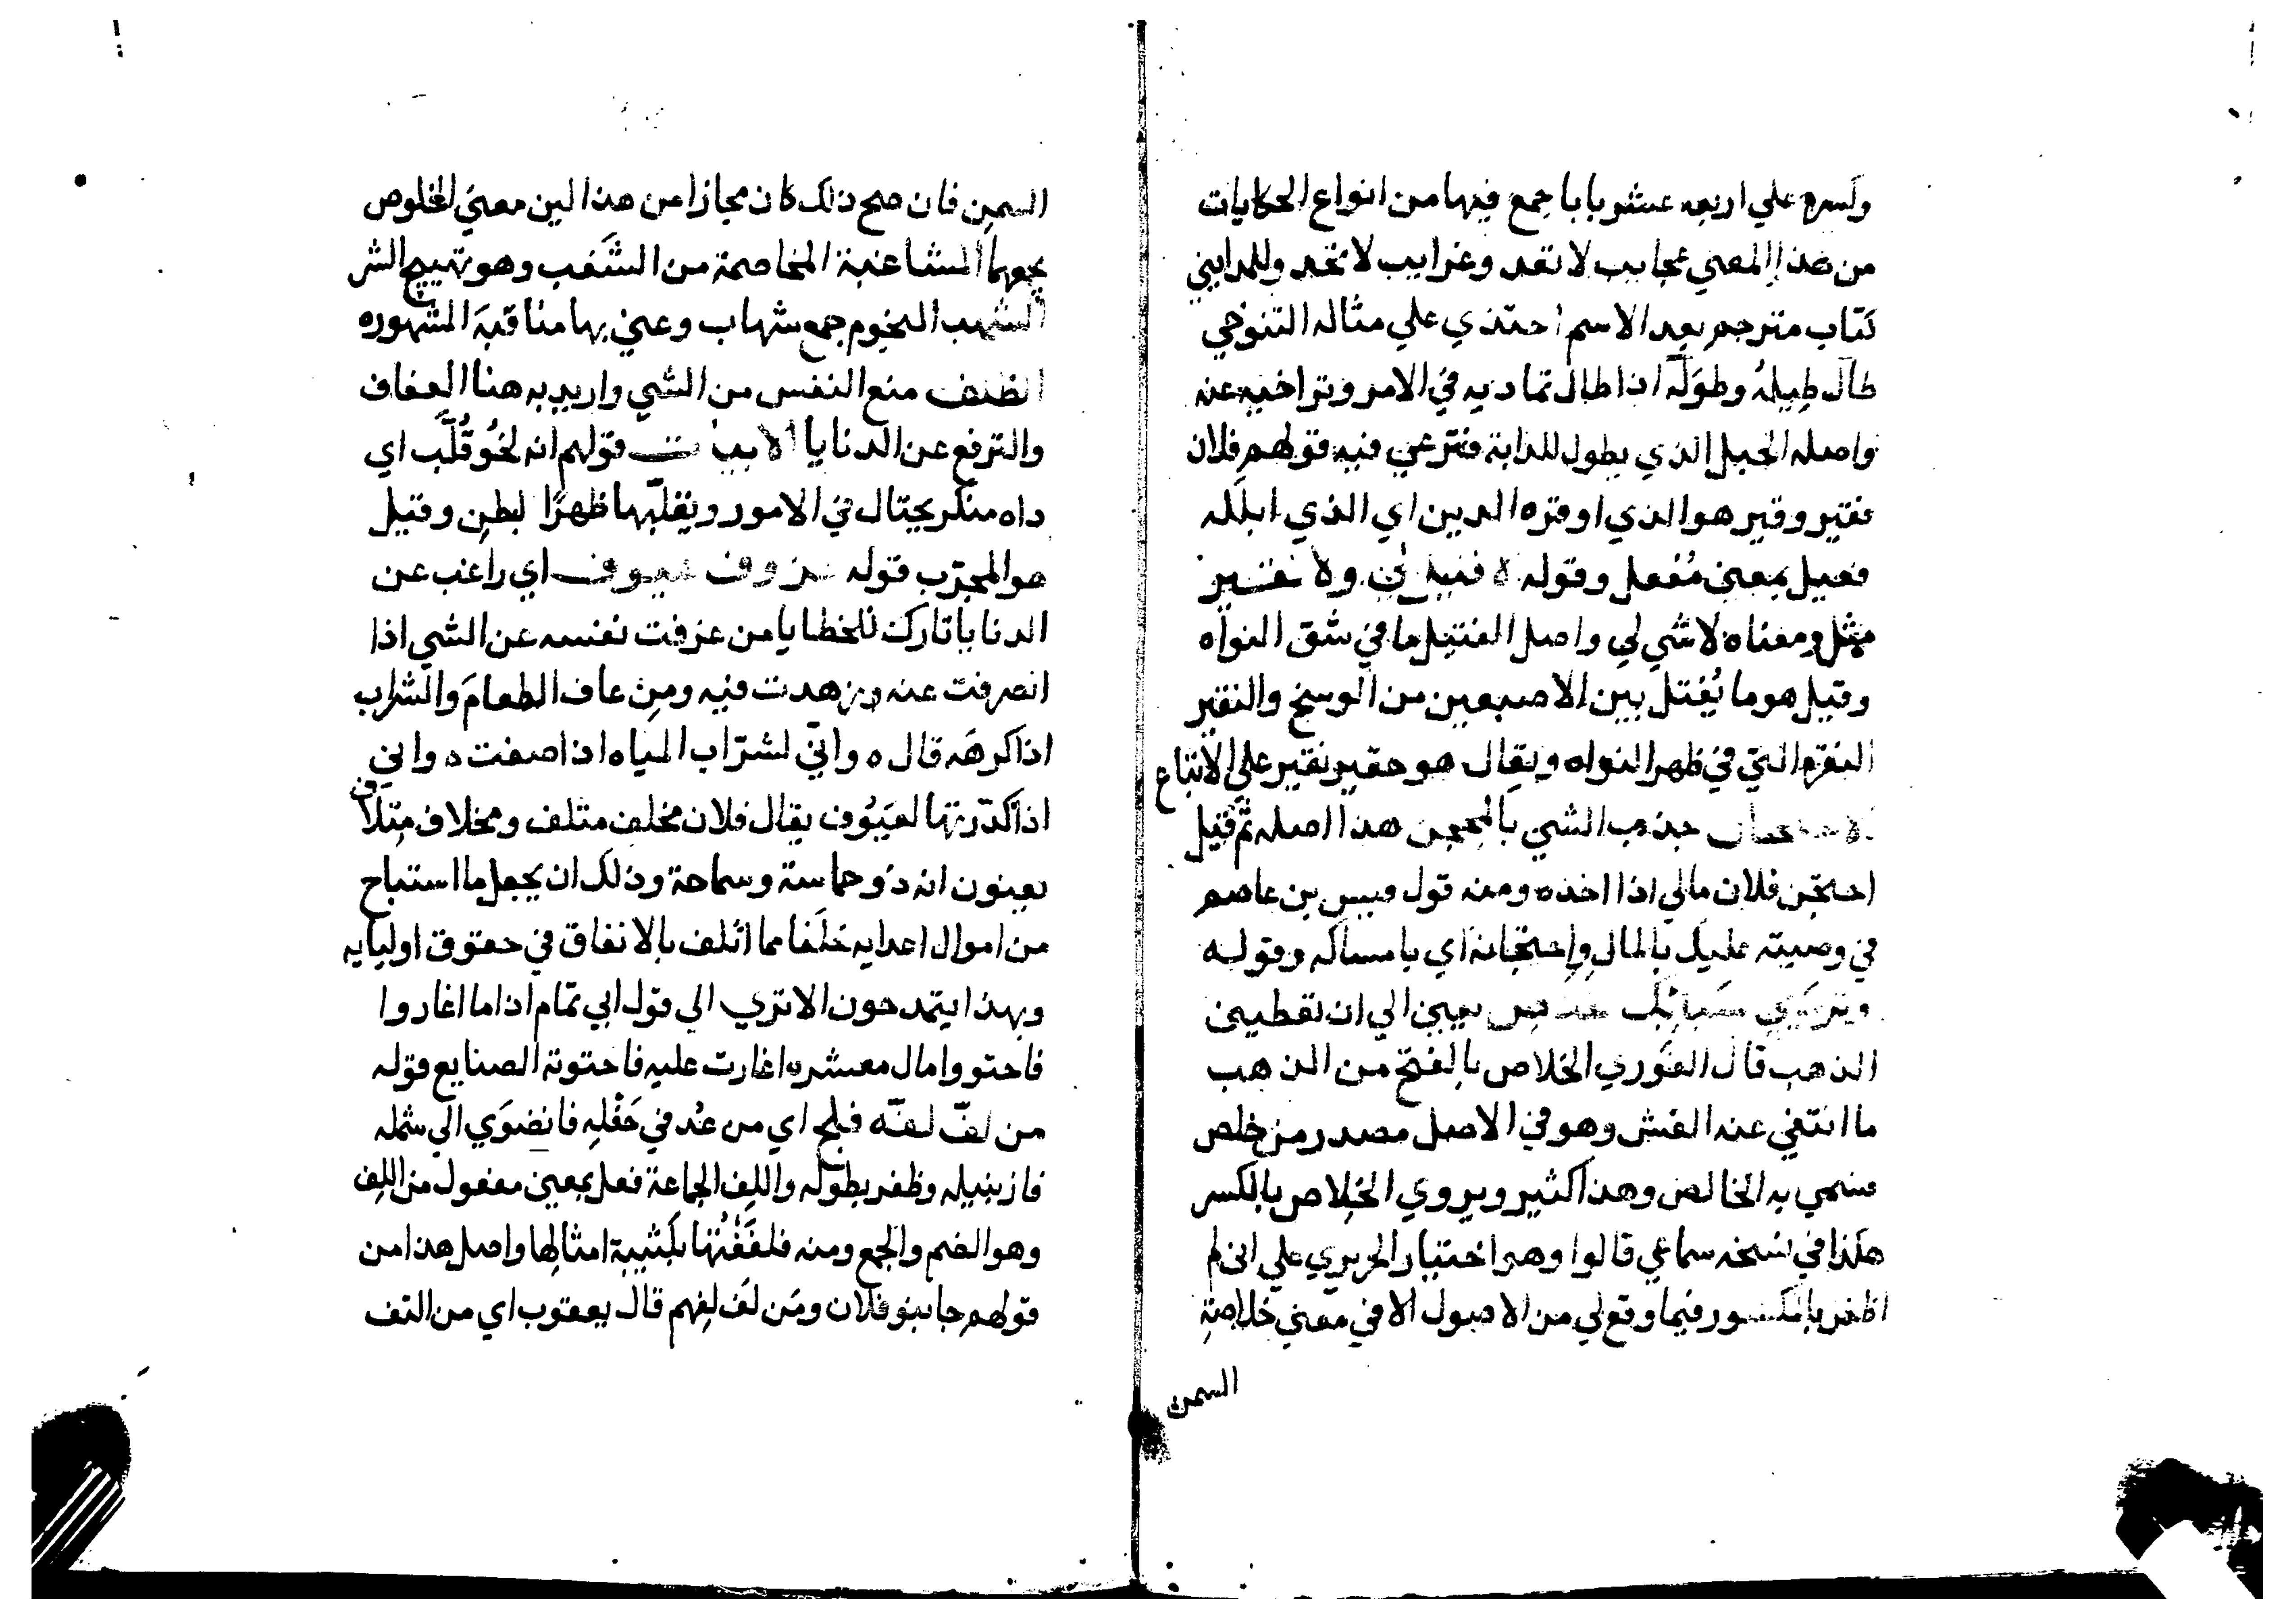 وكسره علي اربعه عشر بابا جمع فيها من انواع الحكايات
من هذا المعني عجايب لا تعد وغرايب لا تحد وللمدايني
كتاب مترجم بهذا الاسم احتذي علي مثاله التنوخي
طال طِيلهُ وطوَله اذا طال تماديه في الامر وتراخيه عنه
واصله الحبل الذي يطول للدابة فترعي فيه قولهم فلان
فقير وقير هو الذي اوقره الدين اي الذي اثقله
فعيل بمعني مُفعل وقوله لا فتيل لي ولا نقير
مثل ومعناه لا شي لي واصل الفتيل ما في شق النواه
وقيل هو ما يُفتل بين الاصبعين من الوسخ والنقير
النقره التي في ظهر النواه ويقال هو حقير نقير علي الاتباع
الاحتجان جذب الشي بالمحجن هذا اصله ثم قيل
احتجن فلان مالي اذا اخذه ومنه قول قيس بن عاصم
في وصيته عليكم بالمال واحتجانه اي بامساكه وقوله
يعني الي ان تعطيني
الذهب قال الغوري الخلاص بالفتح من الذهب
ما انتفي عنه الغش وهو في الاصل مصدر من خلص
فسمي به الخالص وهذا كثير ويروي الخِلاص بالكسر
هكذا في نسخه سماعي قالوا وهو اختيار الحريري علي اني لم
اظفر بالمكسور فيما وقع لي من الاصول الا في معني خلاصة
السمن
السمن فان صح ذلك كان مجازا من هذا البن معني الخلوص
يجمعهما المشاغبة المخاصمة من الشَغب وهو تهييج الشر
الشهب النجوم جمع شهاب وعني بها مناقبَه المشهوره
الظلف منع النفس من الشي واريد به هنا العفاف
والترفع عن الدنايا قولهم انه لحُوَّل قُلَّب اي
داه منكر يحتال في الامور ويقلّبها ظهرًا لبطن وقيل
هو المجرّب قوله عزوف عيوف اي راغب عن
الدنايا تارك للخطايا من عزفت نفسه عن الشي اذا
انصرفت عنه وزهدت فيه ومِن عاف الطعامَ والشراب
اذا كرهَه قال ه وانّي لشرّاب المياه اذا صفت ه واني
اذا كدّرتها لعَيُوف يقال فلان مخلف متلف ومخلاف مِتلاف
يعنون انه ذو حماسة وسماحة وذلك ان يجعل ما استباح
من اموال اعدايه خلَفا مما اتلف بالانفاق في حقوق اوليايه
وبهذا يتمدحون الا تري الي قول ابي تمّام اذا ما اغاروا
فاحتووا مال معشره اغارت عليه فاحتوته الصنايع قوله
من لفّ لفّه فلج اي من عُد في حَفْلِه فانضوَي الي شمله
فاز بنيله وظفر بطوله واللِف الجماعة فعل بمعني مفعول من اللف
وهو الضم والجمع ومنه فلفَفْتُها بكتيبة امثالِها واصل هذا من
قولهم جا بنو فلان ومَن لَف لِفهم قال يعقوب اي من التف